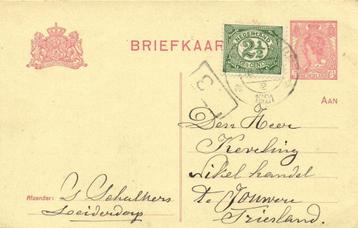 BRIEFKAART
NEDERLAND
2½
CENT
AAN
Den Heer
Keveling
Nikel handel
De Jouwere
Friesland.
Afzender: J Schulkers
Leiderdorp